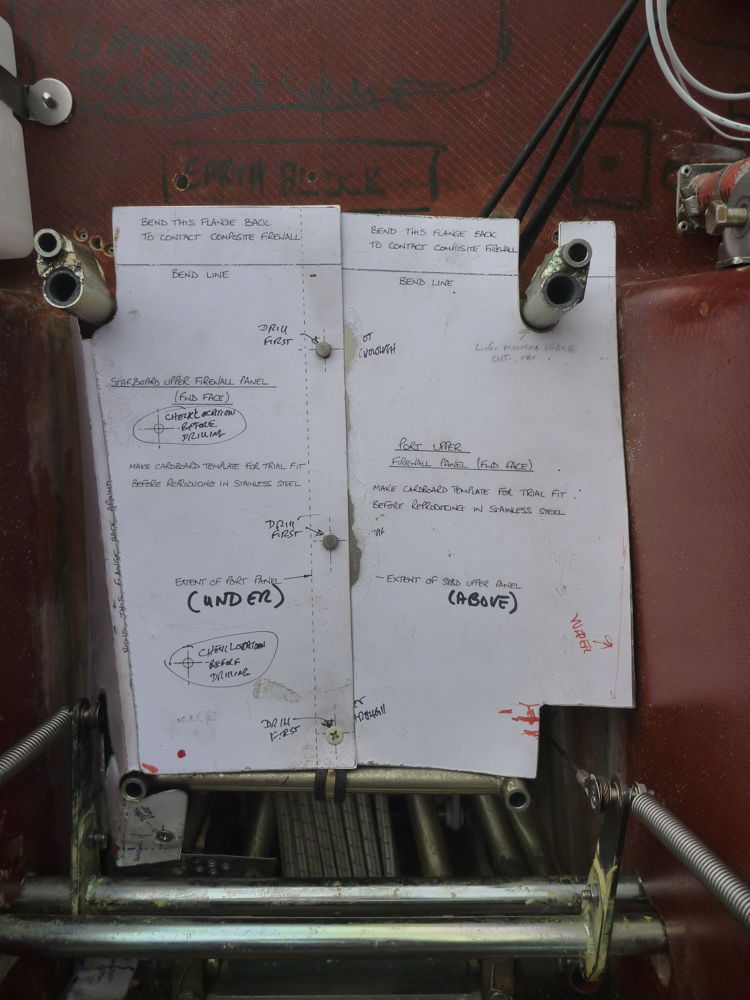 BATTERY
EARTH BLOCK
BEND THIS FLANGE BACK
TO CONTACT COMPOSITE FIREWALL
BEND LINE
DRILL
FIRST
STARBOARD UPPER FIREWALL PANEL
(FWD FACE)
CHECK LOCATION
BEFORE
DRILLING
MAKE CARDBOARD TEMPLATE FOR TRIAL FIT
BEFORE REPRODUCING IN STAINLESS STEEL
DRILL
FIRST
EXTENT OF PORT PANEL
(UNDER)
CHECK LOCATION
BEFORE
DRILLING
DRILL
FIRST
BEND THIS FLANGE BACK AROUND
BEND THIS FLANGE BACK
TO CONTACT COMPOSITE FIREWALL
BEND LINE
OT
CUT OUT
PORT UPPER
FIREWALL PANEL (FWD FACE)
MAKE CARDBOARD TEMPLATE FOR TRIAL FIT
BEFORE REPRODUCING IN STAINLESS STEEL
EXTENT OF STBD UPPER PANEL
(ABOVE)
WIDER